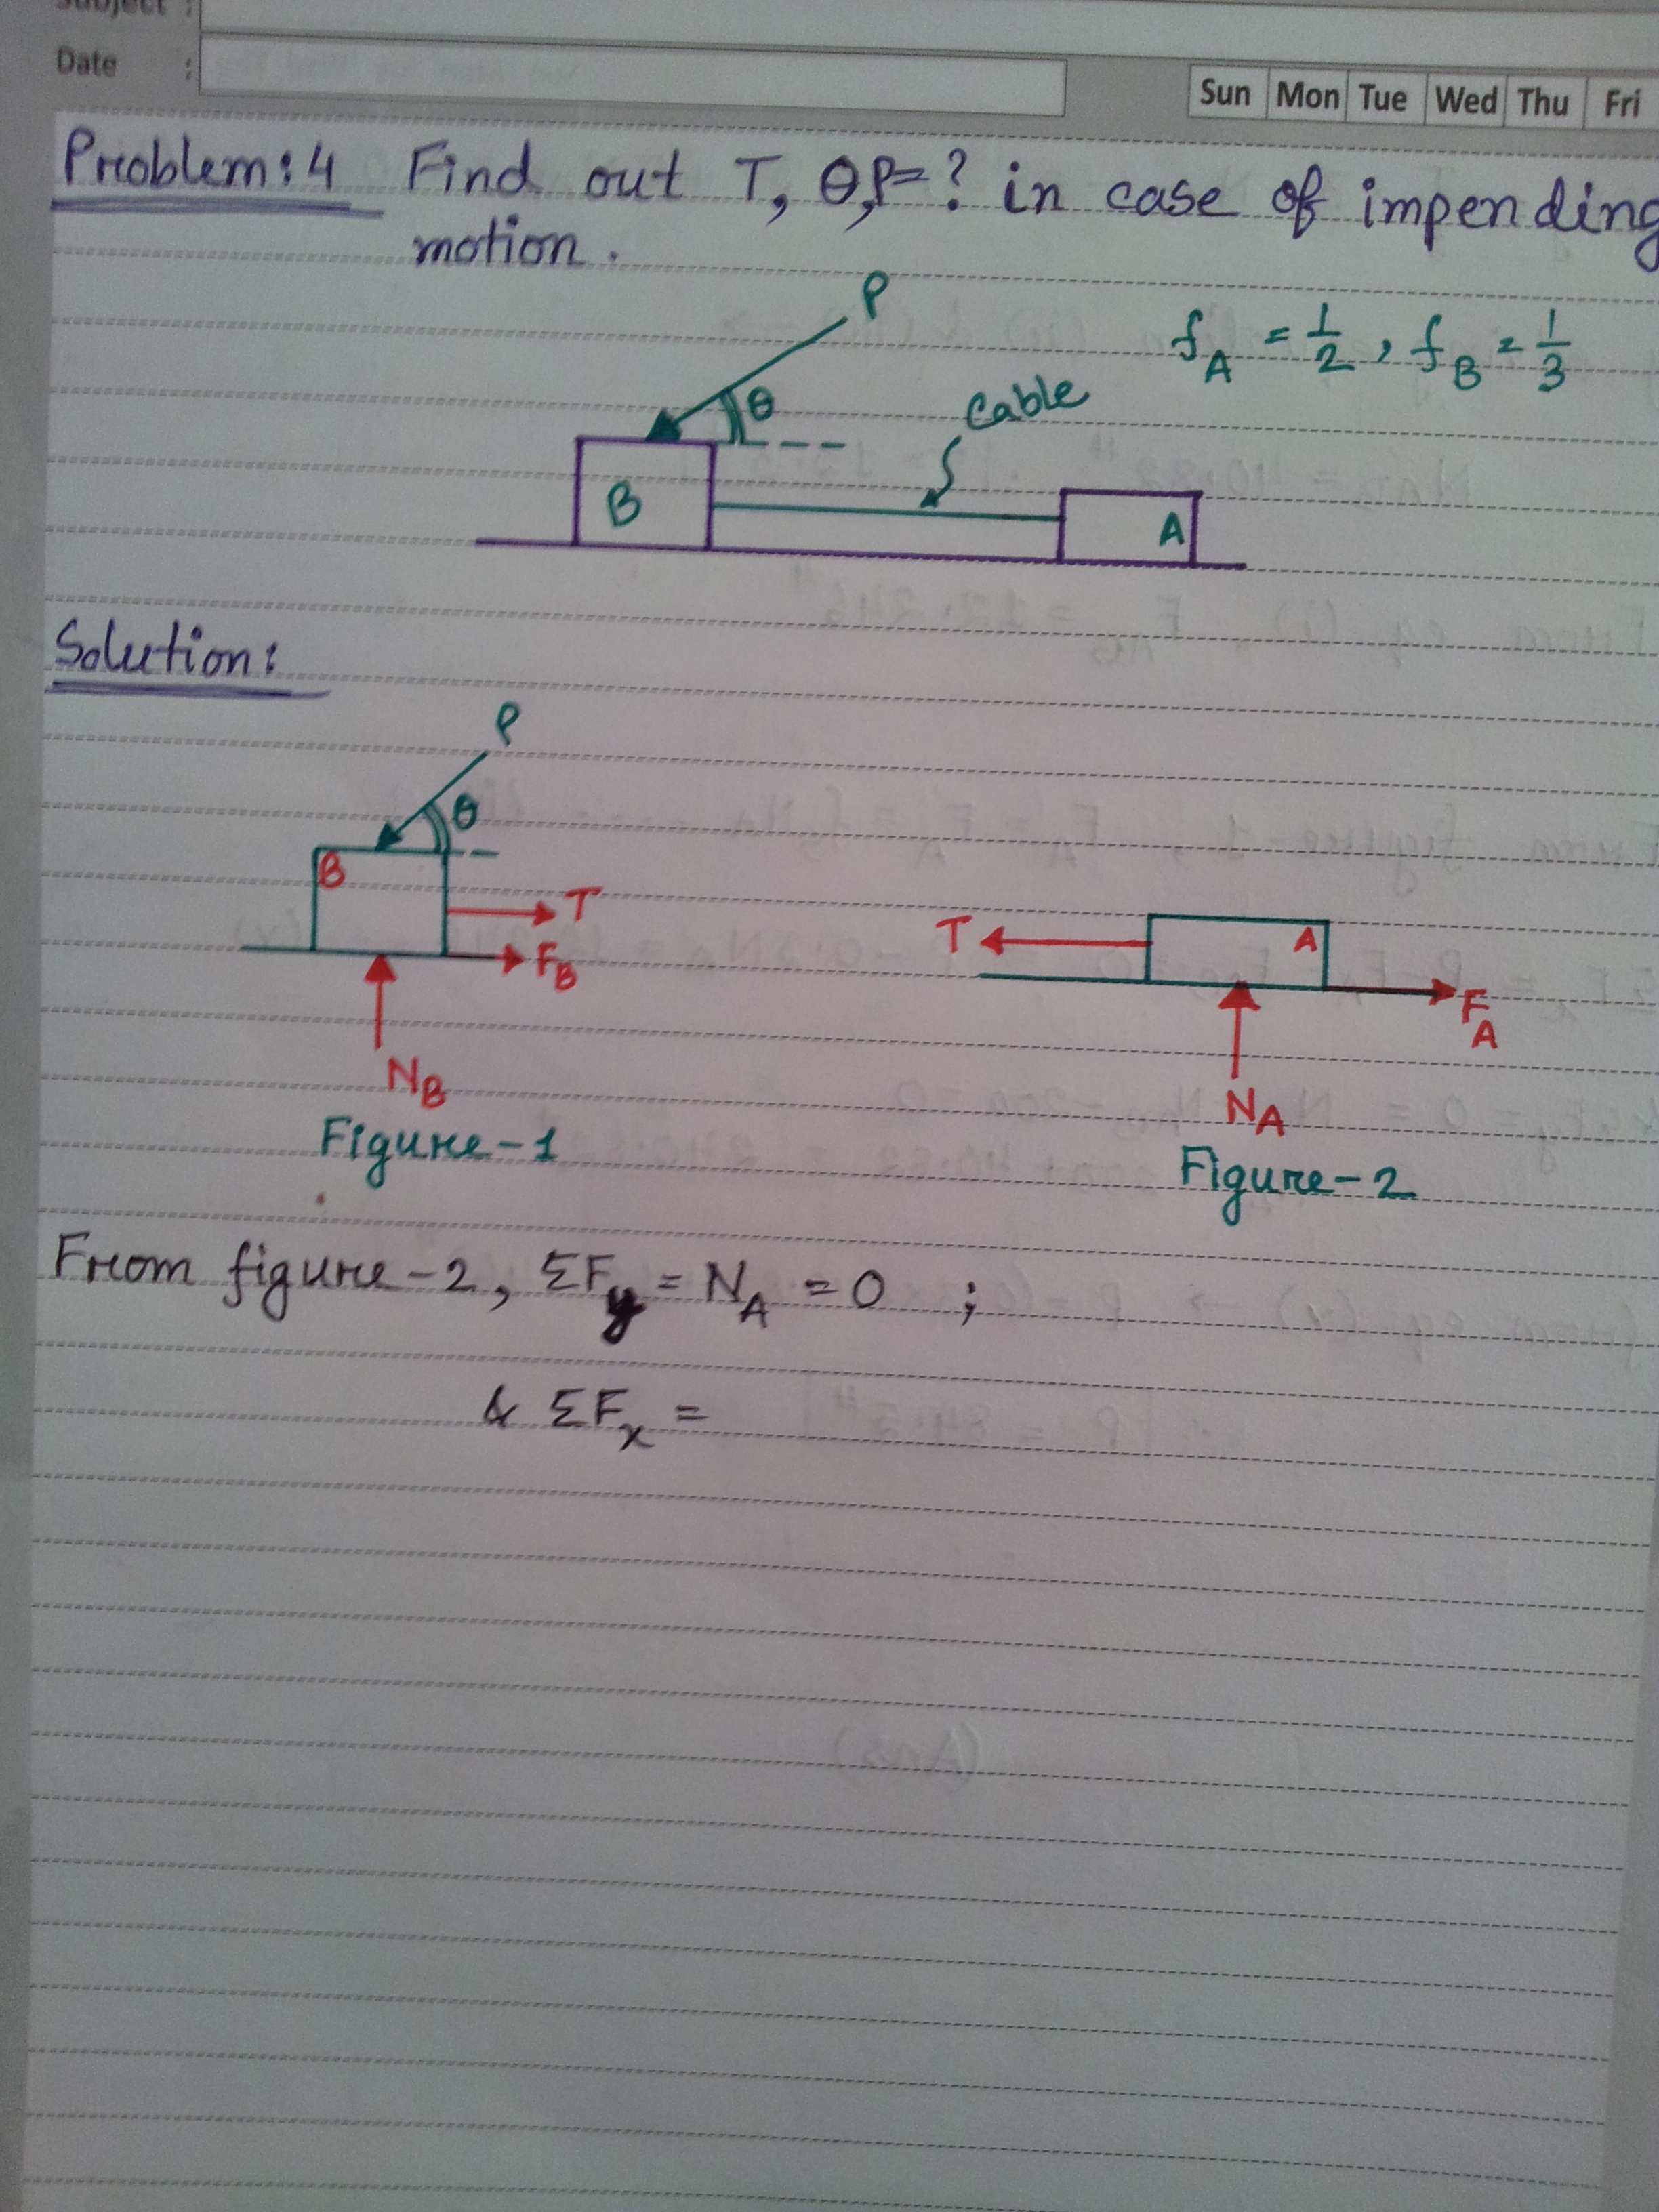 Subject :
Date :
Sun Mon Tue Wed Thu Fri
Problem:4 Find out T, θ,P=? in case of impending
motion.
P
f_A = 1/2, f_B = 1/3
θ
Cable
B
A
Solution:
P
θ
B
T
T
A
F_B
F_A
N_B
N_A
Figure-1
Figure-2
From figure-2, ΣF_y = N_A = 0 ;
& ΣF_x =